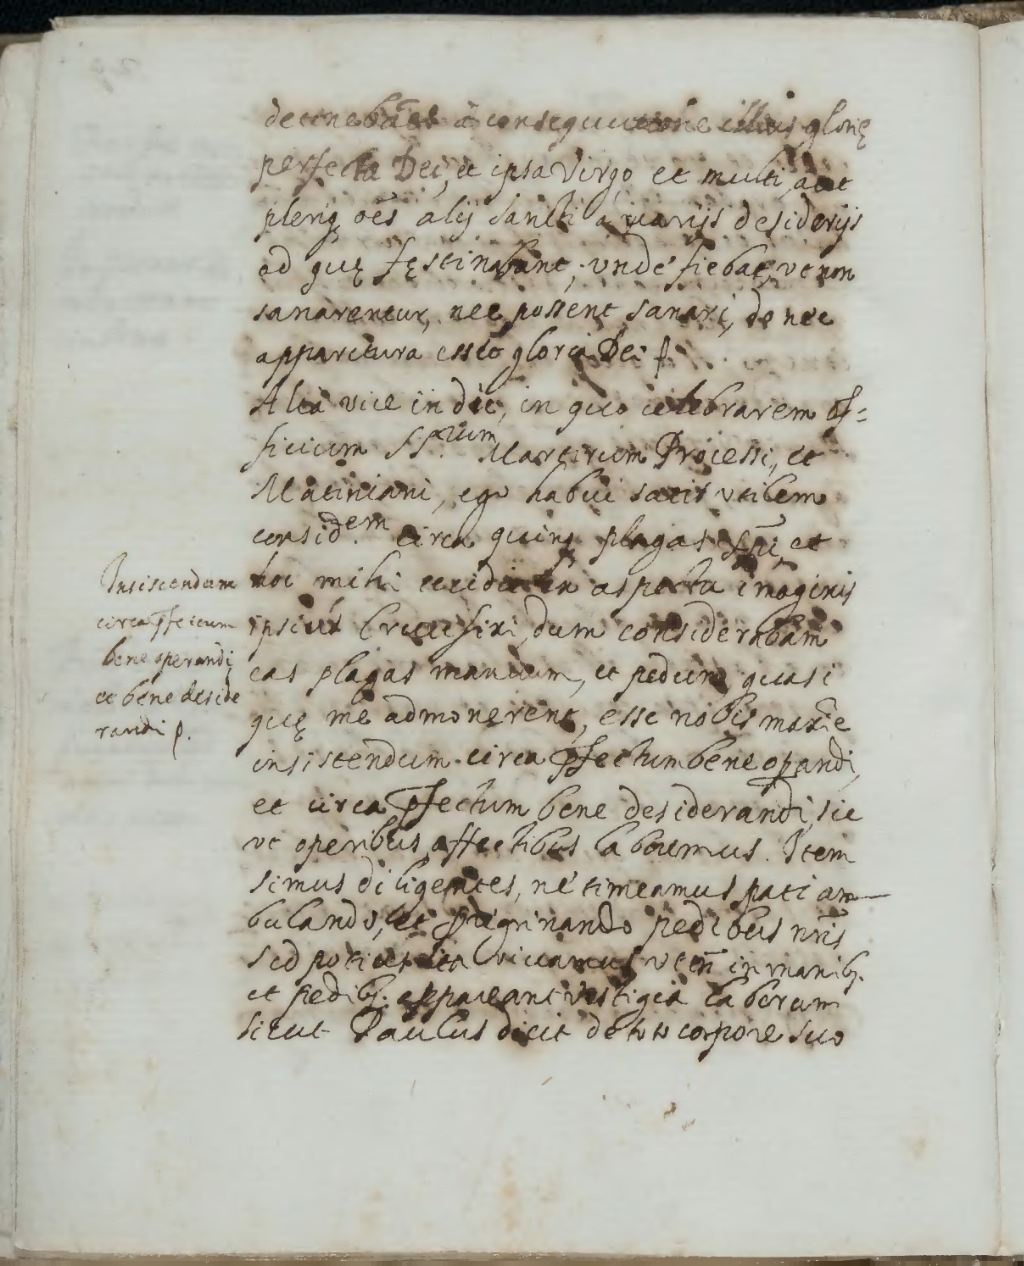 detinebãt à consequutione illius glorię
perfecta Dei, et ipsa Virgo et multi, aut
pleriq; oẽs alij Sancti à varijs desiderijs
ad quę fęstinabant, vnde fiebat, vt non
sanarentur, nec possent sanari, donec
apparitura esset gloria Dei
Alia vice in die, in quo celebrarem of=
ficium SS.rum Martirum Processi, et
Matiniani, ego habui satis vtilem
consid.em circa quinq; plagas Xpi, et
hoc mihi accidit in aspectu imaginis
ipsius Crucifixi, dum considerabam
eas plagas manuum, et pedum quasi
quę me admonerent, esse nobis maxĩe
insistendum circa ꝓfectum bene oꝑandi,
et circa ꝓfectum bene desiderandi, sic
vt operibus, affectibus laboremus. Item
simus diligentes, ne timeamus pati am
bulando, et peregrinando pedibus nr̃is
sed potius ita vivamus vt in manib;
et pedib; appareant vestigia laborum
sicut Paulus dicit de toto corpore suo
Insistendum
circa ꝓfectum
bene operandi,
et bene deside
randi